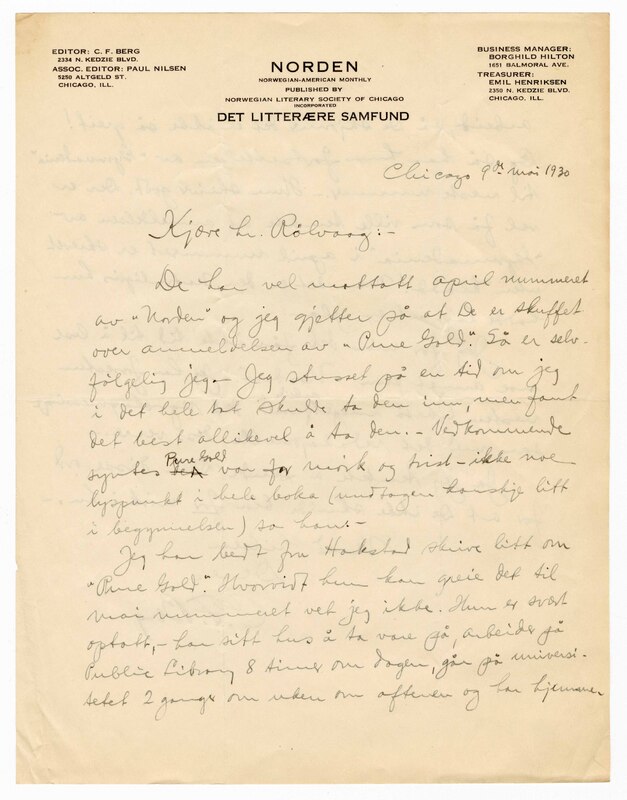 EDITOR: C. F. BERG
2334 N. KEDZIE BLVD.
ASSOC. EDITOR: PAUL NILSEN
5250 ALTGELD ST.
CHICAGO, ILL.
NORDEN
NORWEGIAN-AMERICAN MONTHLY
PUBLISHED BY
NORWEGIAN LITERARY SOCIETY OF CHICAGO
INCORPORATED
DET LITTERÆRE SAMFUND
BUSINESS MANAGER:
BORGHILD HILTON
1651 BALMORAL AVE.
TREASURER:
EMIL HENRIKSEN
2350 N. KEDZIE BLVD.
CHICAGO, ILL.
Chicago 9de mai 1930
Kjære hr. Rølvaag:-
De har vel mottatt april nummeret
av "Norden" og jeg gjetter på at De er skuffet
over anmeldelsen av "Pure Gold". Så er selv-
følgelig jeg. Jeg stusset på en tid om jeg
i det hele tat skulde ta den inn, men fant
det best allikevel å ta den. - Vedkommende
syntes Pure Gold var for mørk og trist - ikke noe
lyspunkt i hele boka (undtagen kanskje litt
i begynnelsen) sa han:-
Jeg har bedt fru Hakstad skrive litt om
"Pure Gold". Hvorvidt hun kan greie det til
mai nummeret vet jeg ikke. Hun er svært
optatt, - har sitt hus å ta vare på, arbeider på
Public Library 8 timer om dagen, går på universi-
tetet 2 ganger om uken om aftenen og har hjemme-